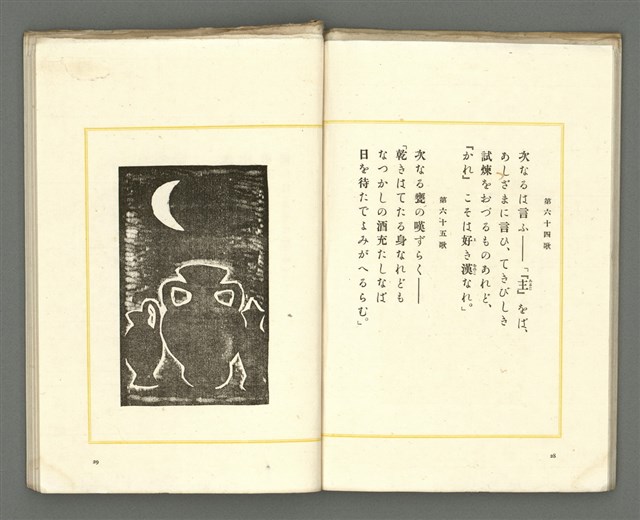 第六十四歌
次なるは言ふ――「『主』をば、
あしざまに言ひ、てきびしき
試煉をおづるものあれど、
『かれ』こそは好き漢なれ。」
第六十五歌
次なる甕の嘆ずらく――
「乾きはてたる身なれども
なつかしの酒充たしなば
日を待たでよみがへるらむ。」